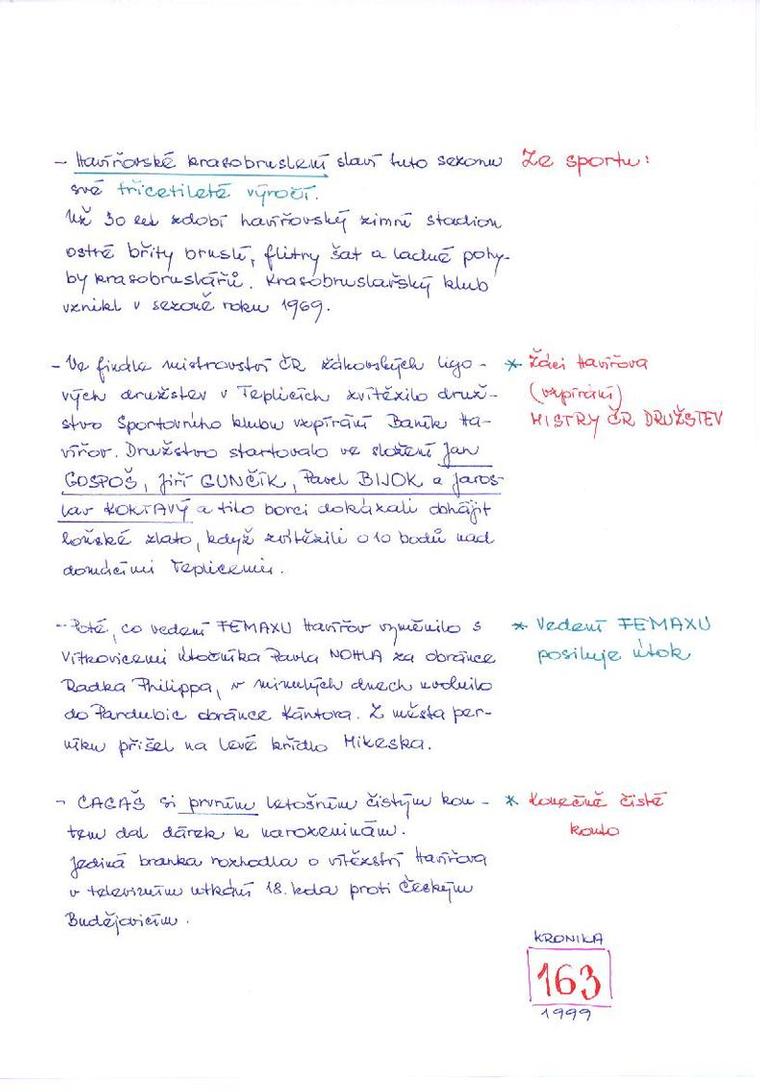 - Havířovské krasobruslení slaví tuto sezonu
Ze sportu:
své třicetileté výročí.
Už 30 let zdobí havířovský zimní stadion
ostré břity bruslí, flitry šat a ladné pohy-
by krasobruslařů. Krasobruslařský klub
vznikl v sezoně roku 1969.
- Ve finále mistrovství ČR žákovských ligo-
* Žáci Havířova
vých družstev v Teplicích zvítězilo druž-
(vzpírání)
stvo Sportovního klubu vzpírání Baník Ha-
MISTRY ČR DRUŽSTEV
vířov. Družstvo startovalo ve složení Jan
GOSPOŠ, Jiří GUNČÍK, Pavel BIJOK a Jaros-
lav KOKTAVÝ a tito borci dokázali obhájit
loňské zlato, když zvítězili o 10 bodů nad
domácími Teplicemi.
- Poté, co vedení FEMAXU Havířov vyměnilo s
* Vedení FEMAXU
Vítkovicemi útočníka Pavla NOHLA za obránce
posiluje útok
Radka Philippa, v minulých dnech uvolnilo
do Pardubic obránce Kántora. Z města per-
níku přišel na levé křídlo Mikeska.
- CAGAŠ si prvním letošním čistým kon-
* Konečně čisté
tem dal dárek k narozeninám.
konto
Jediná branka rozhodla o vítězství Havířova
v televizním utkání 18. kola proti Českým
Budějovicím.
KRONIKA
163
1999